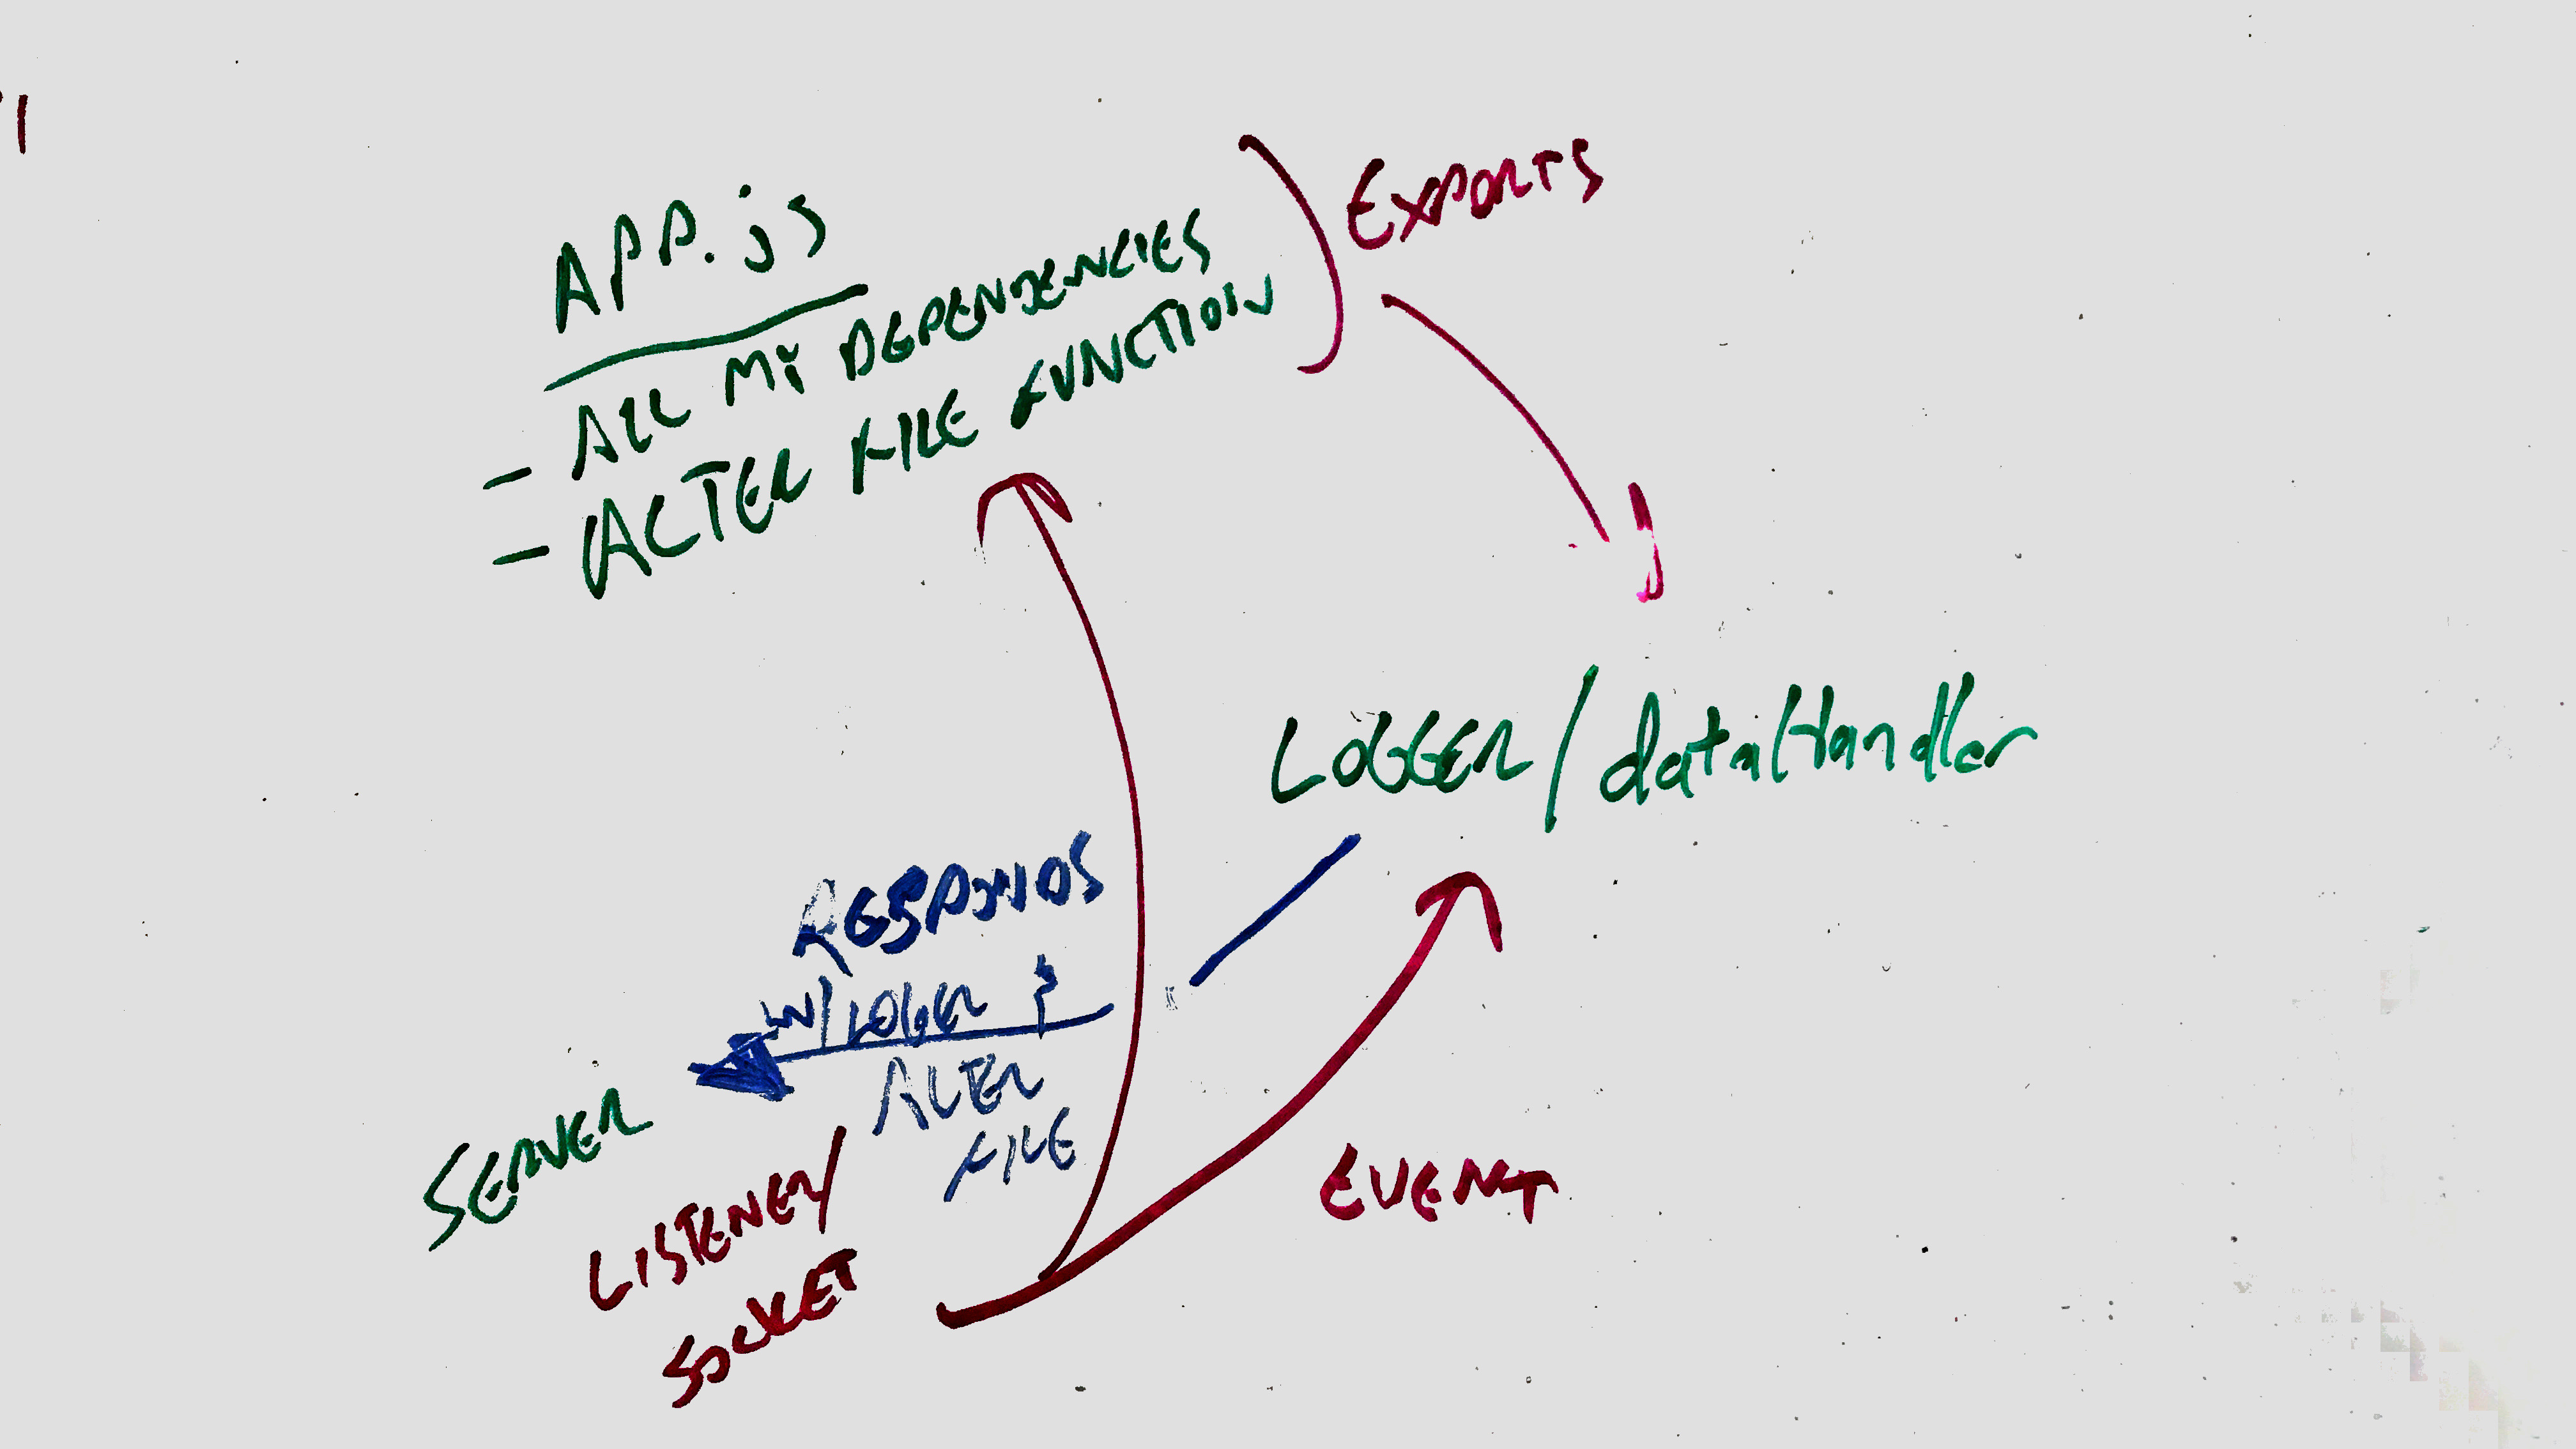 APP.js
- ALL MY DEPENDENCIES
- ALTER FILE FUNCTION
EXPORTS
LOGGER/dataHandler
RESPONDS
W/LOGER &
ALTER
FILE
SERVER
LISTENER/
SOCKET
EVENT